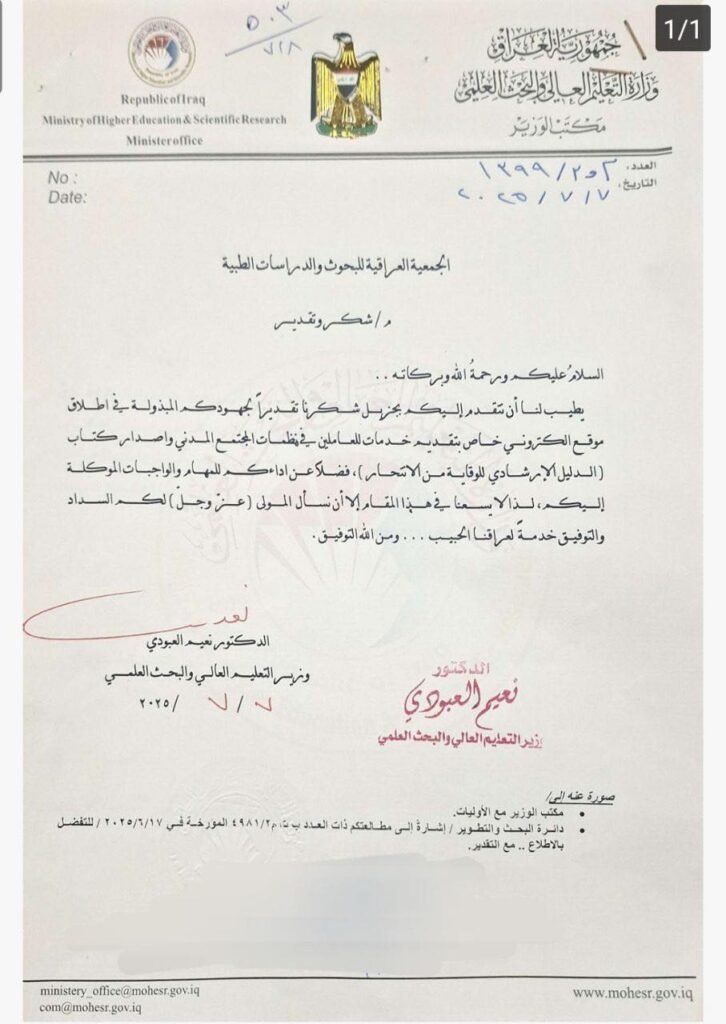 1/1
٥٠٣
٧/٨
Republic of Iraq
Ministry of Higher Education & Scientific Research
Minister office
جمهورية العراق
وزارة التعليم العالي والبحث العلمي
مكتب الوزير
No :
Date:
العدد: م و ٢/ ١٣٩٩
التاريخ: ٢٠٢٥/٧/٧
الجمعية العراقية للبحوث والدراسات الطبية
م/ شكر وتقدير
السلامُ عليكم ورحمةُ الله وبركاته ..
يطيب لنا أن نتقدم إليكم بجزيل شكرنا تقديراً لجهودكم المبذولة في اطلاق
موقع الكتروني خاص بتقديم خدمات للعاملين في نظمات المجتمع المدني واصدار كتاب
(الدليل الإرشادي للوقاية من الانتحار)، فضلاً عن اداءكم للمهام والواجبات الموكلة
إليكم، لذا لا يسعنا في هذا المقام إلا أن نسأل المولى (عزّ وجلّ) لكم السداد
والتوفيق خدمةً لعراقنا الحبيب ... ومن الله التوفيق.
الدكتور نعيم العبودي
وزير التعليم العالي والبحث العلمي
٧/ ٧ /٢٠٢٥
الدكتور
نعيم العبودي
وزير التعليم العالي والبحث العلمي
صورة عنه إلى/
• مكتب الوزير مع الأوليات.
• دائرة البحث والتطوير / إشارةً إلى مطالعتكم ذات العدد ب ت م٤٩٨١/٢ المؤرخة في ٢٠٢٥/٦/١٧ / للتفضل
بالاطلاع .. مع التقدير.
ministery_office@mohesr.gov.iq
com@mohesr.gov.iq
www.mohesr.gov.iq